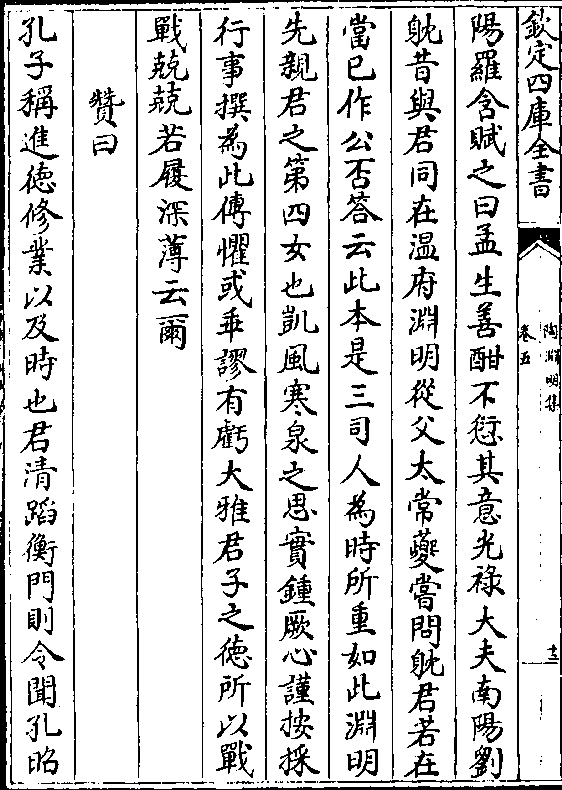 欽定四庫全書
陶淵明集
卷五
十二
陽羅含賦之曰孟生善酣不愆其意光祿大夫南陽劉
躭昔與君同在温府淵明從父太常夔嘗問躭君若在
當已作公否答云此本是三司人為時所重如此淵明
先親君之第四女也凱風寒泉之思實鍾厥心謹按採
行事撰為此傳懼或乖謬有虧大雅君子之徳所以戰
戰兢兢若履深薄云爾
贊曰
孔子稱進徳修業以及時也君清蹈衡門則令聞孔昭